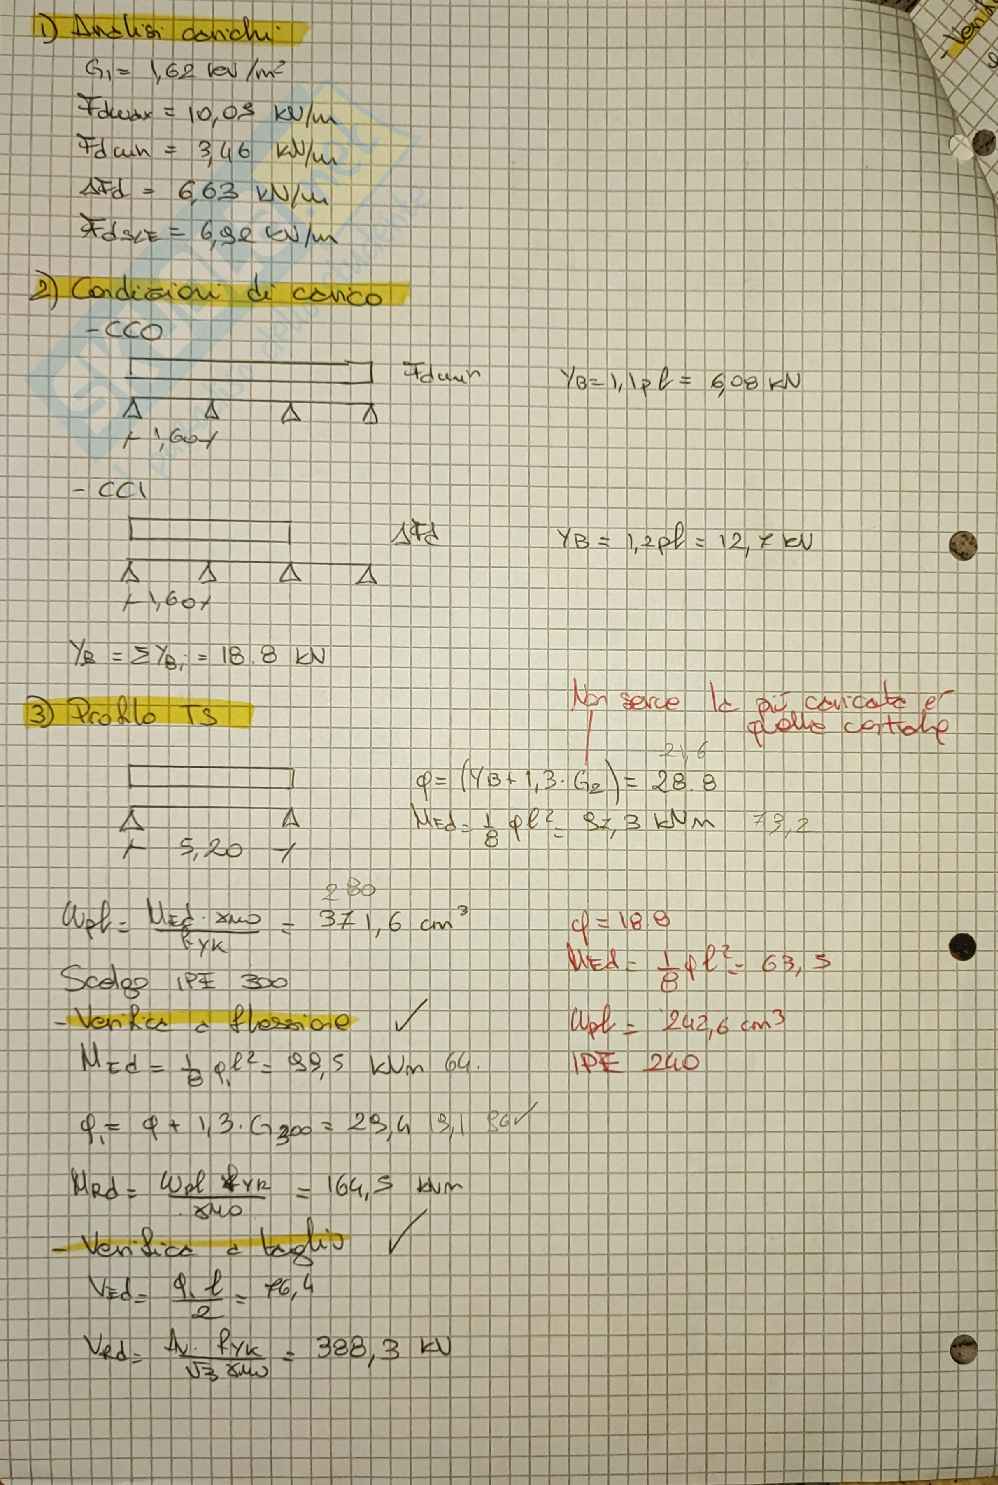 1) Analisi carichi:
G1 = 1,62 kN/m²
Fdmax = 10,09 kN/m
Fdmin = 3,46 kN/m
ΔFd = 6,63 kN/m
FdSLE = 6,92 kN/m
2) Condizioni di carico
- CC0
Fdmin
YB = 1,1pl = 6,08 kN
1,60
- CC1
ΔFd
YB = 1,2pl = 12,7 kN
1,60
YB = ΣYBi = 18.8 kN
3) Profilo TS
Non serve la più caricata è
quella centrale
21,6
q = (YB + 1,3·G2) = 28.8
MEd = 1/8 ql² = 97,3 kNm 73,2
5,20
280
Wpl = MEd·γM0/fyk = 371,6 cm³
q = 18.8
MEd = 1/8 ql² = 63,5
Scelgo IPE 300
Wpl = 242,6 cm³
- Verifica a flessione ✓
IPE 240
MEd = 1/8 q1l² = 99,5 kNm 64.
q1 = q + 1,3·G300 = 29,4 19,1 ✓
MRd = Wpl fyk/γM0 = 164,5 kNm
- Verifica a taglio ✓
VEd = q1 l/2 = 76,4
VRd = Av·fyk/√3 γM0 = 388,3 kN